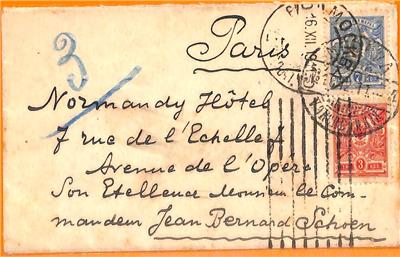 3
Paris
Normandy Hôtel
7 rue de l'Echelle
Avenue de l'Opéra
Son Exellence Monsieur le Com-
mandeur Jean Bernard Schoen
16.XII.19
3